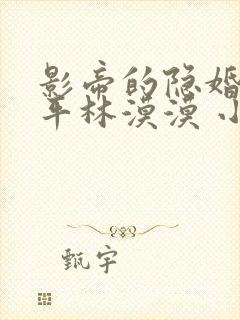 影帝的隐婚
平林漠漠 小
甄宇